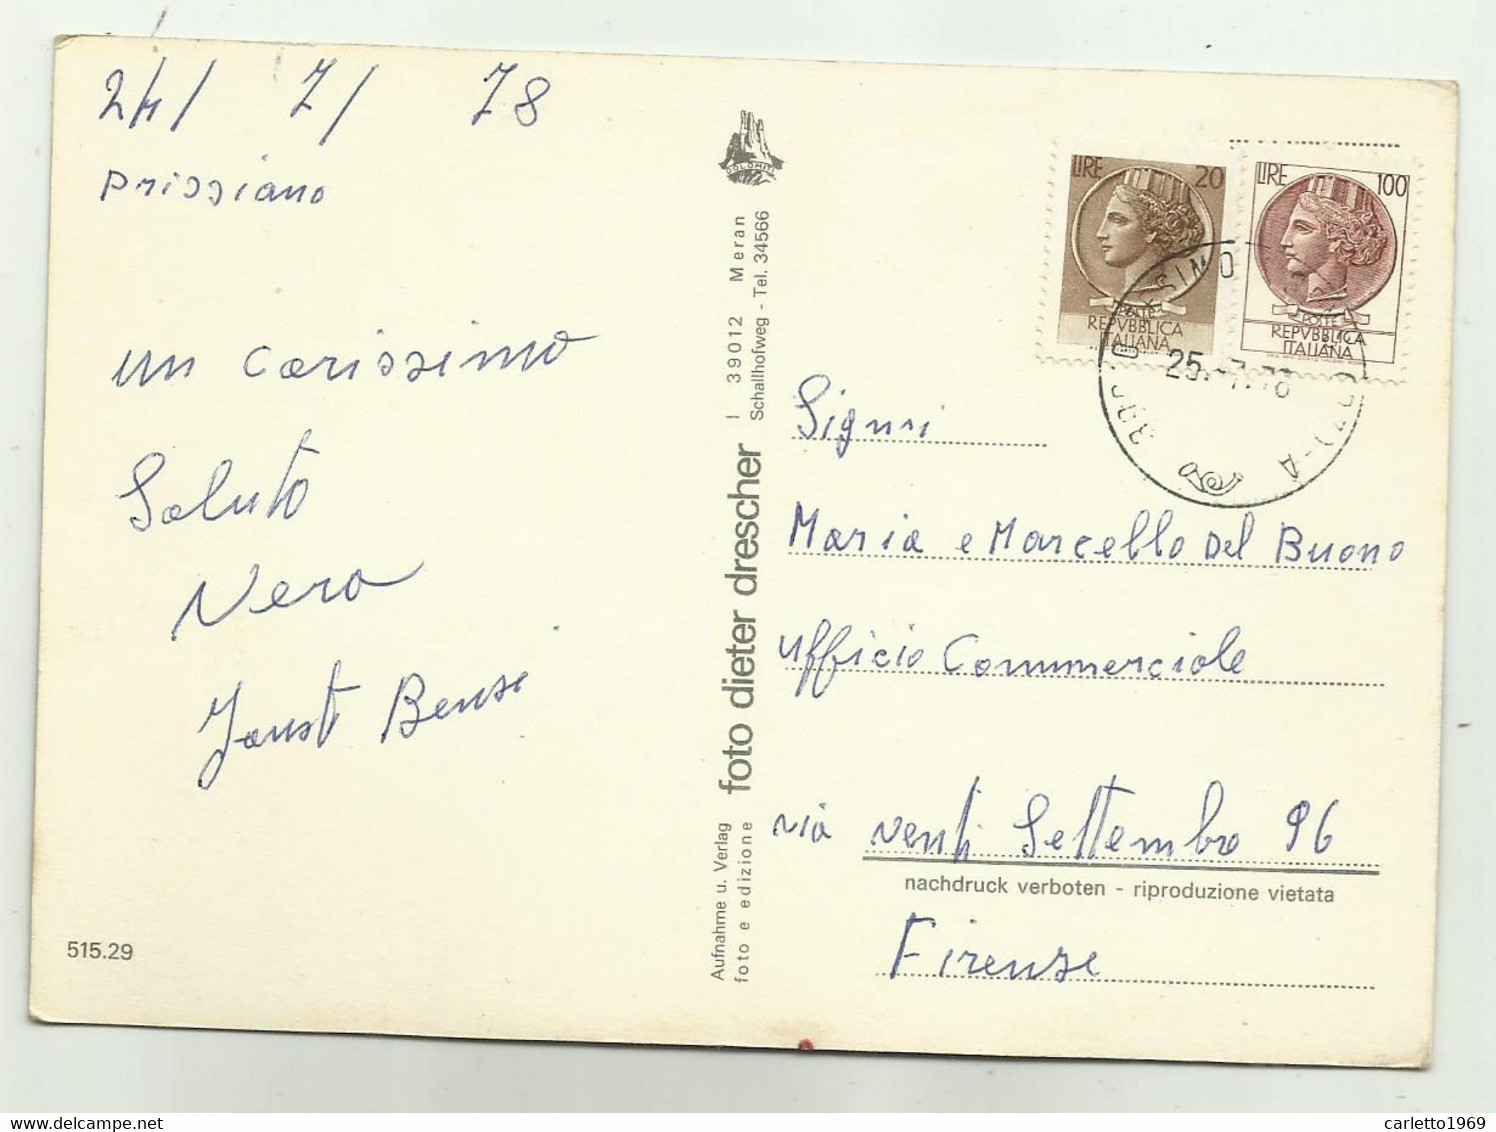 24/ 7/ 78
Prissiano
un carissimo
Saluto
Vera
Fausto Bensi
515.29
DOLOMITI
I 39012 Meran
Schallhofweg - Tel. 34566
foto dieter drescher
Aufnahme u. Verlag
foto e edizione
LIRE 20
POSTE
REPVBBLICA
ITALIANA
LIRE 100
POSTE
REPVBBLICA
ITALIANA
25.-7.78
Signori
Maria e Marcello Del Buono
Ufficio Commerciale
via venti Settembre 96
nachdruck verboten - riproduzione vietata
Firenze
delcampe.net
carletto1969